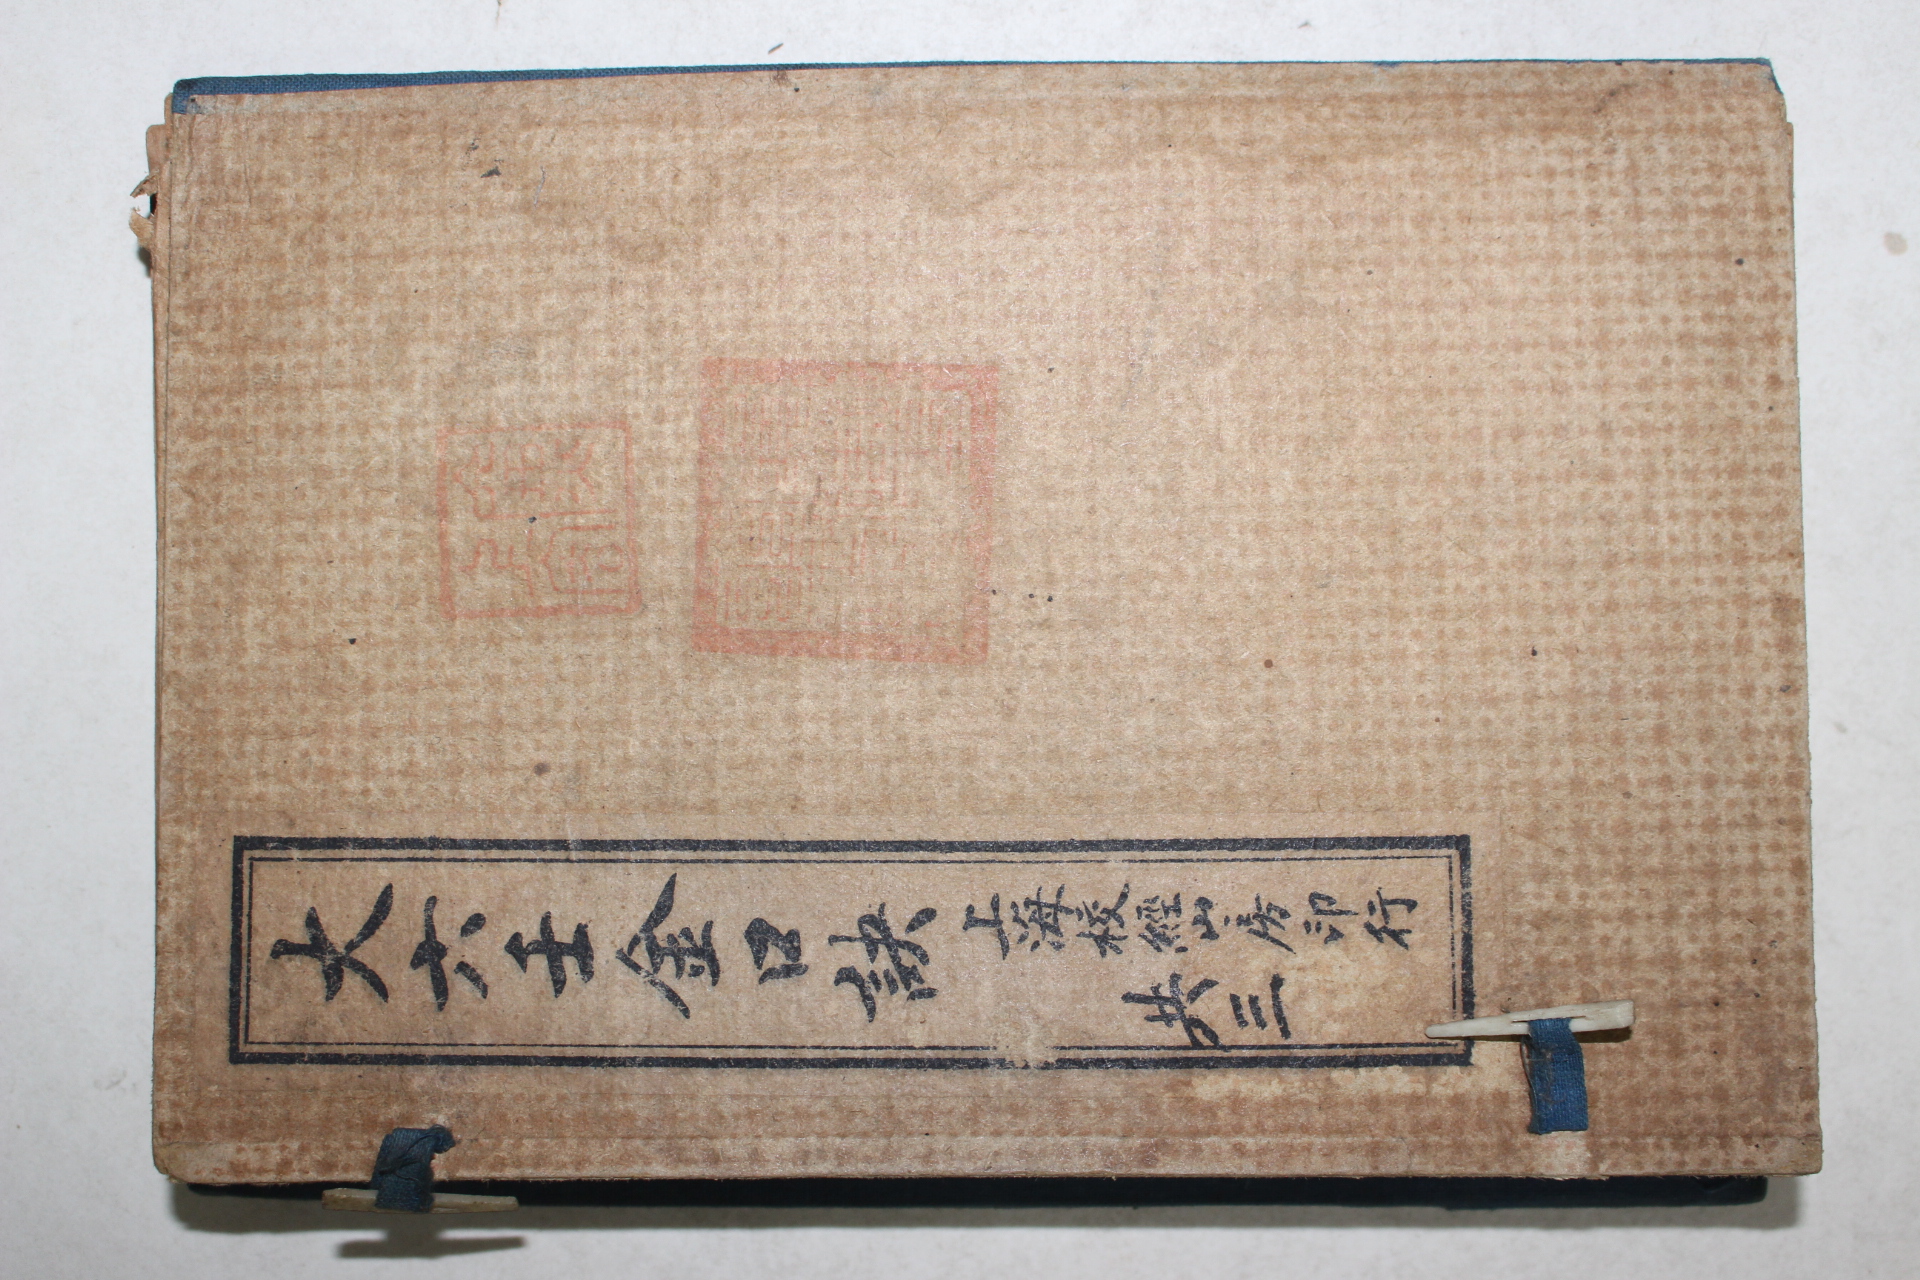 大六壬金口訣
上海校經山房印行
共三